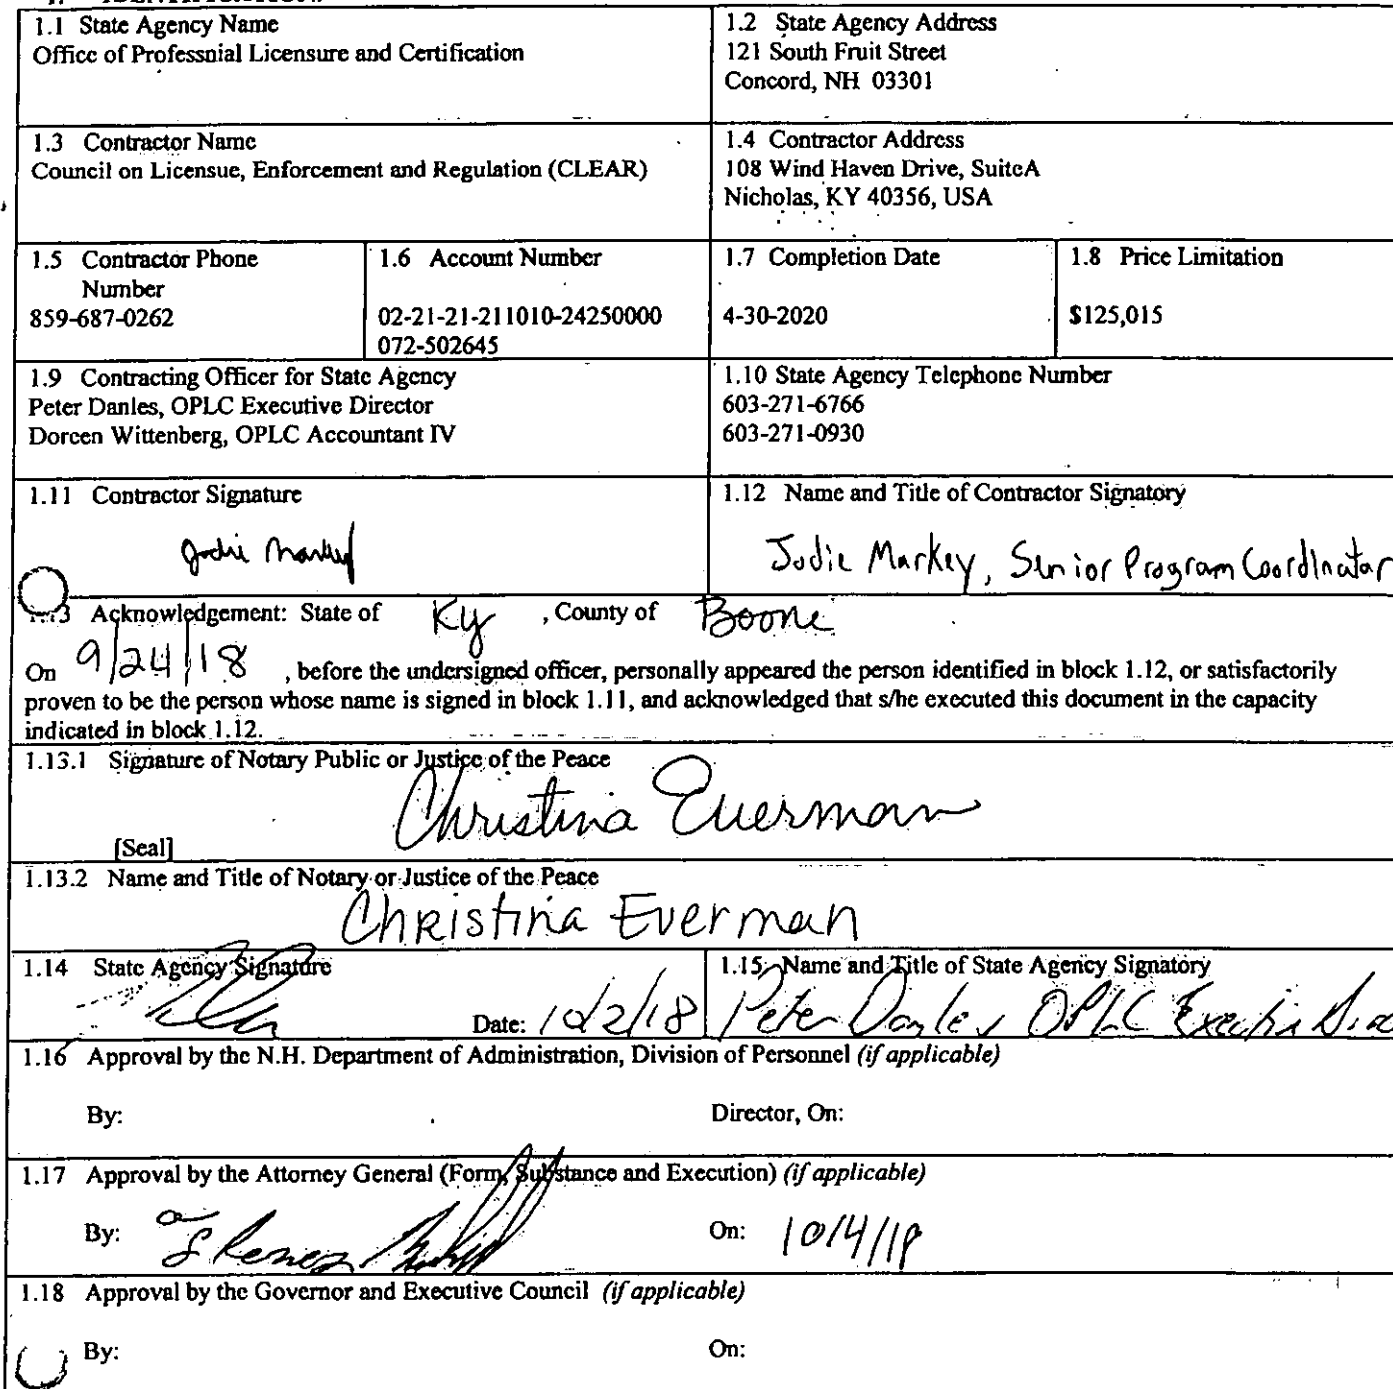 1.1 State Agency Name
Office of Professnial Licensure and Certification
1.2 State Agency Address
121 South Fruit Street
Concord, NH 03301
1.3 Contractor Name
Council on Licensue, Enforcement and Regulation (CLEAR)
1.4 Contractor Address
108 Wind Haven Drive, SuiteA
Nicholas, KY 40356, USA
1.5 Contractor Phone
Number
859-687-0262
1.6 Account Number
02-21-21-211010-24250000
072-502645
1.7 Completion Date
4-30-2020
1.8 Price Limitation
$125,015
1.9 Contracting Officer for State Agency
Peter Danles, OPLC Executive Director
Doreen Wittenberg, OPLC Accountant IV
1.10 State Agency Telephone Number
603-271-6766
603-271-0930
1.11 Contractor Signature
Jodie Markey
1.12 Name and Title of Contractor Signatory
Jodie Markey, Senior Program Coordinator
1.13 Acknowledgement: State of Ky , County of Boone
On 9/24/18 , before the undersigned officer, personally appeared the person identified in block 1.12, or satisfactorily
proven to be the person whose name is signed in block 1.11, and acknowledged that s/he executed this document in the capacity
indicated in block 1.12.
1.13.1 Signature of Notary Public or Justice of the Peace
Christina Everman
[Seal]
1.13.2 Name and Title of Notary or Justice of the Peace
Christina Everman
1.14 State Agency Signature
Date: 10/2/18
1.15 Name and Title of State Agency Signatory
Peter Danles OPLC Executive
1.16 Approval by the N.H. Department of Administration, Division of Personnel (if applicable)
By: Director, On:
1.17 Approval by the Attorney General (Form, Substance and Execution) (if applicable)
By: On: 10/4/18
1.18 Approval by the Governor and Executive Council (if applicable)
By: On: